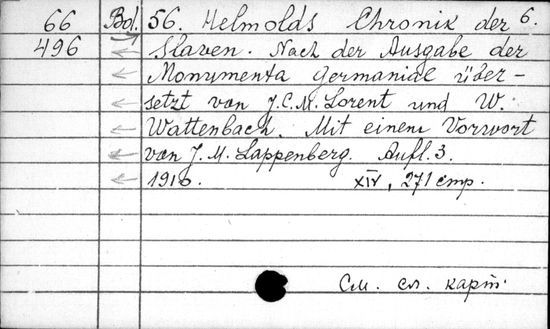 66 Bd. 56. Helmolds Chronik der 6.
496 Slaven. Nach der Ausgabe der
Monumenta Germaniae über-
setzt von J.C.M. Lorent und W.
Wattenbach. Mit einem Vorwort
von J. M. Lappenberg. Aufl. 3.
1910. XIV, 271 стр.
См. сл. карт.